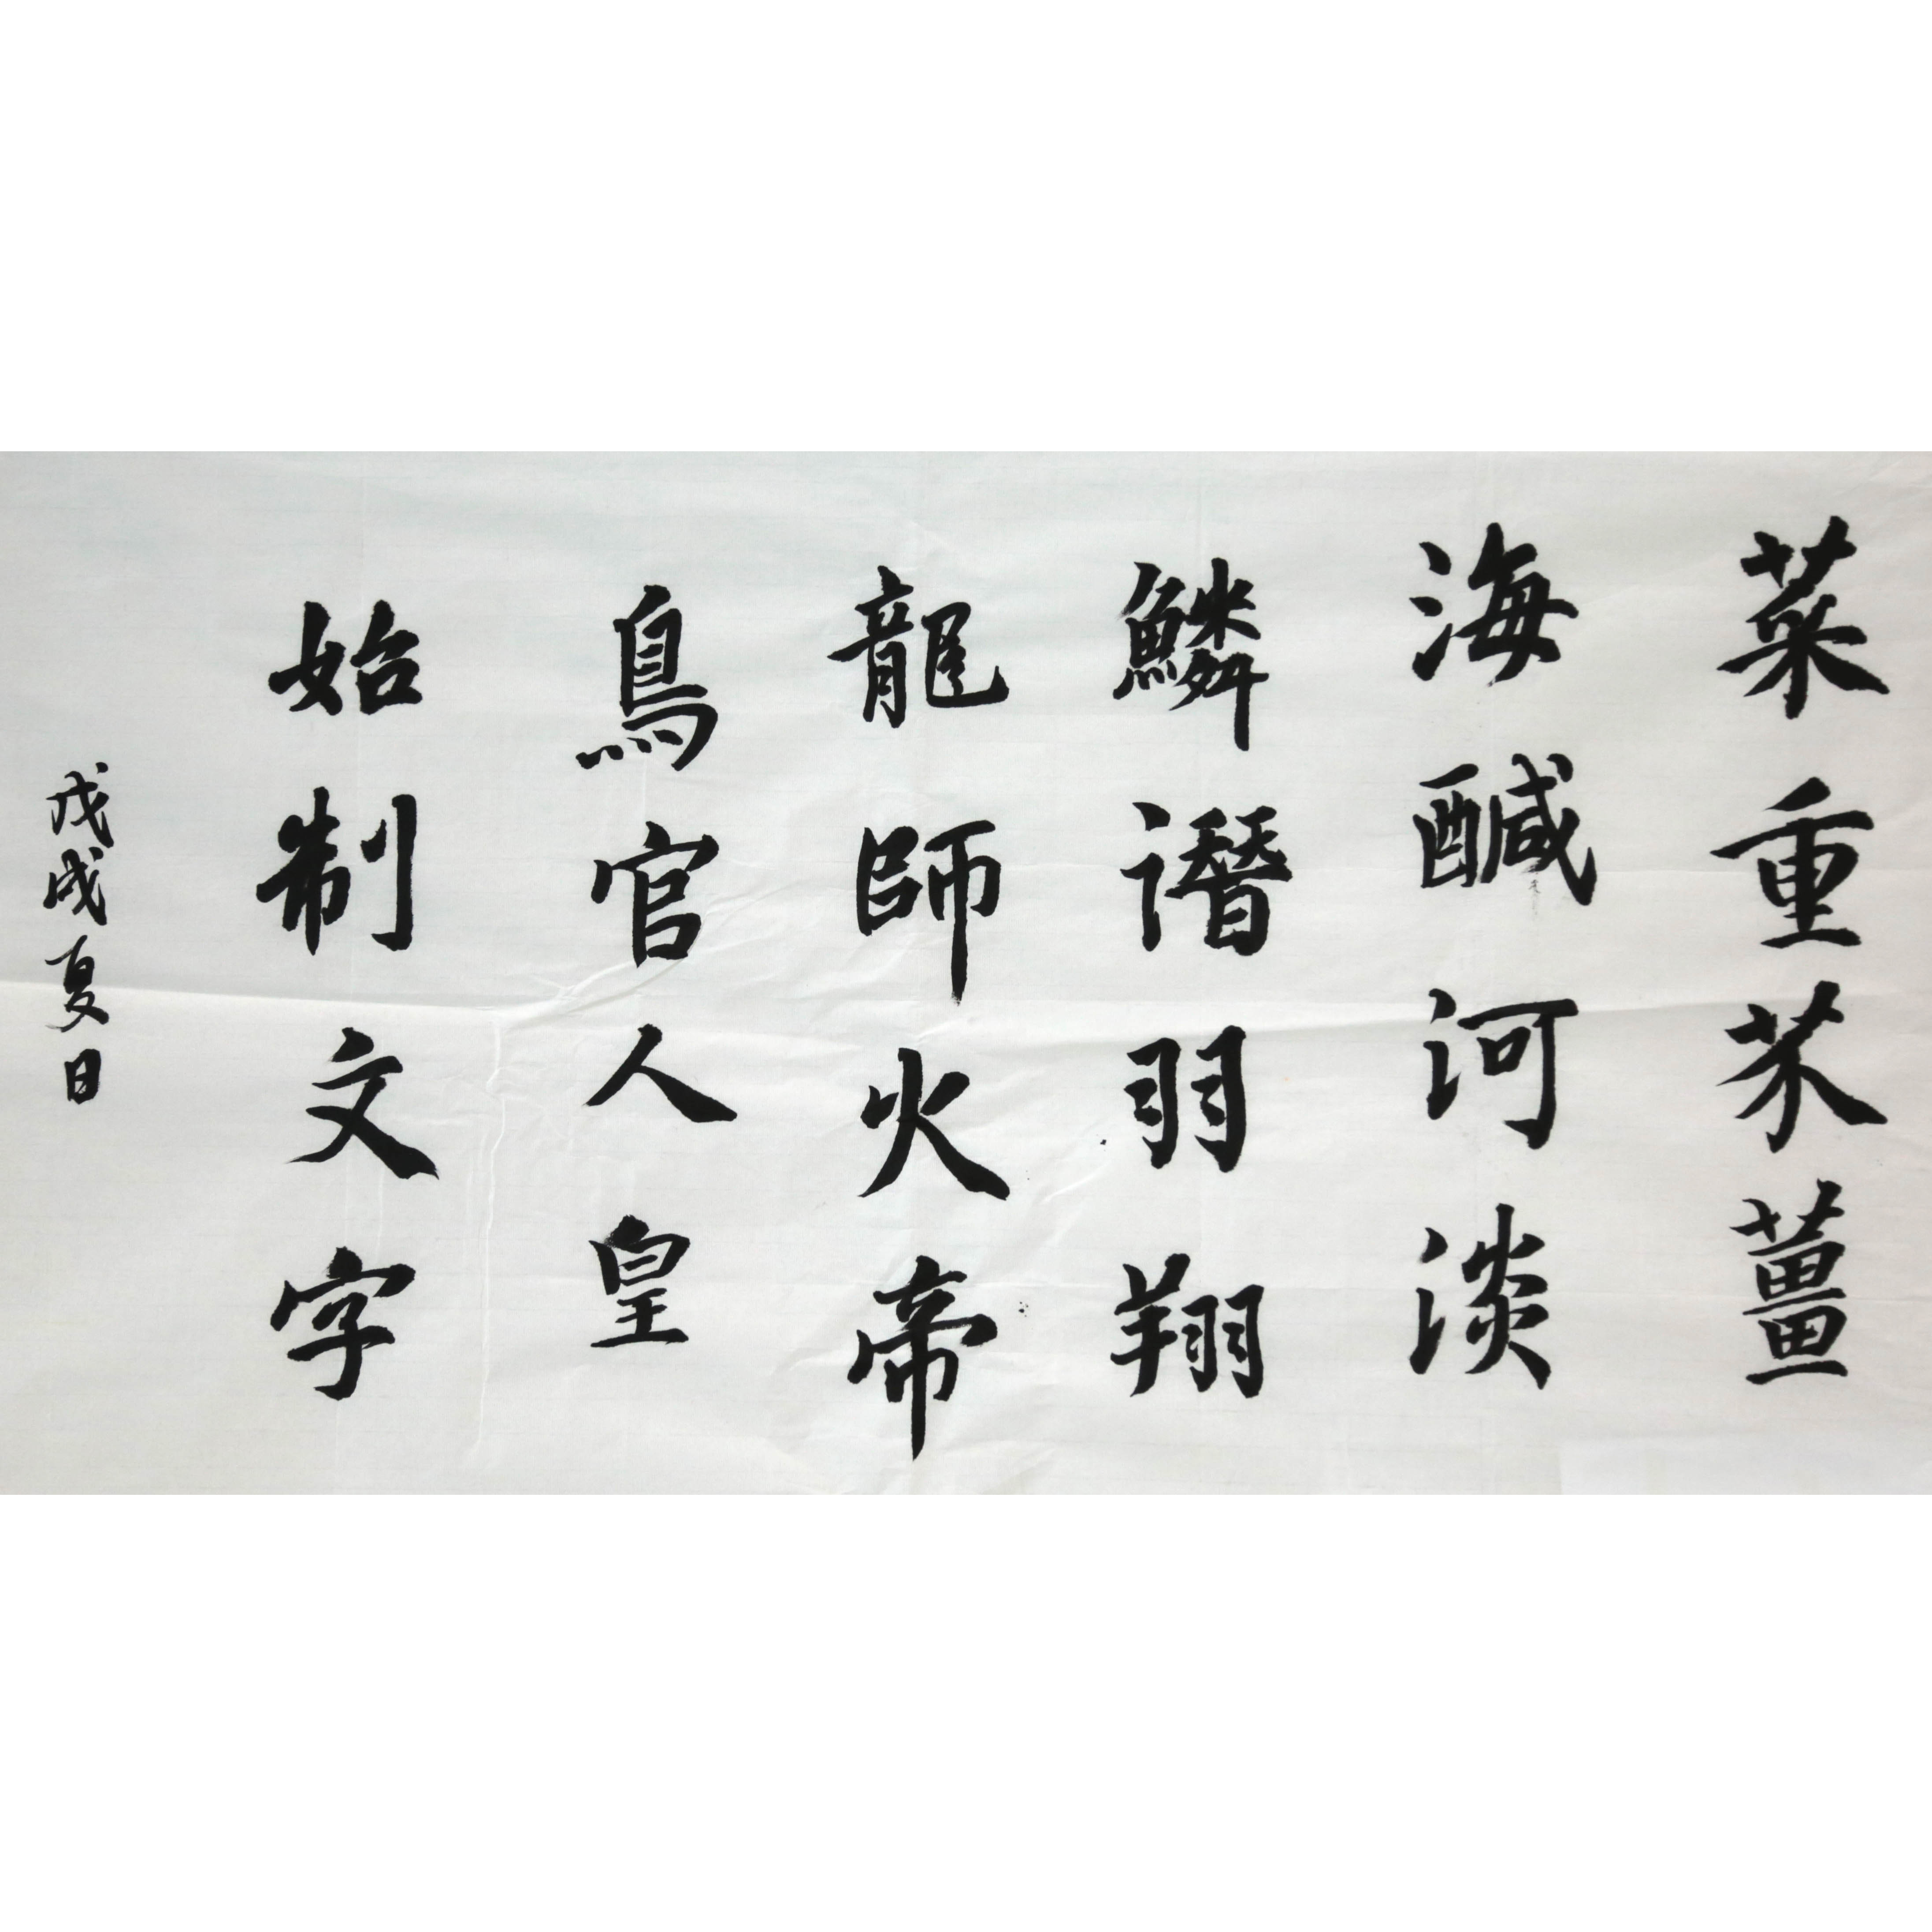 菜重芥薑
海醎河淡
鱗潛羽翔
龍師火帝
鳥官人皇
始制文字
戊戌夏日